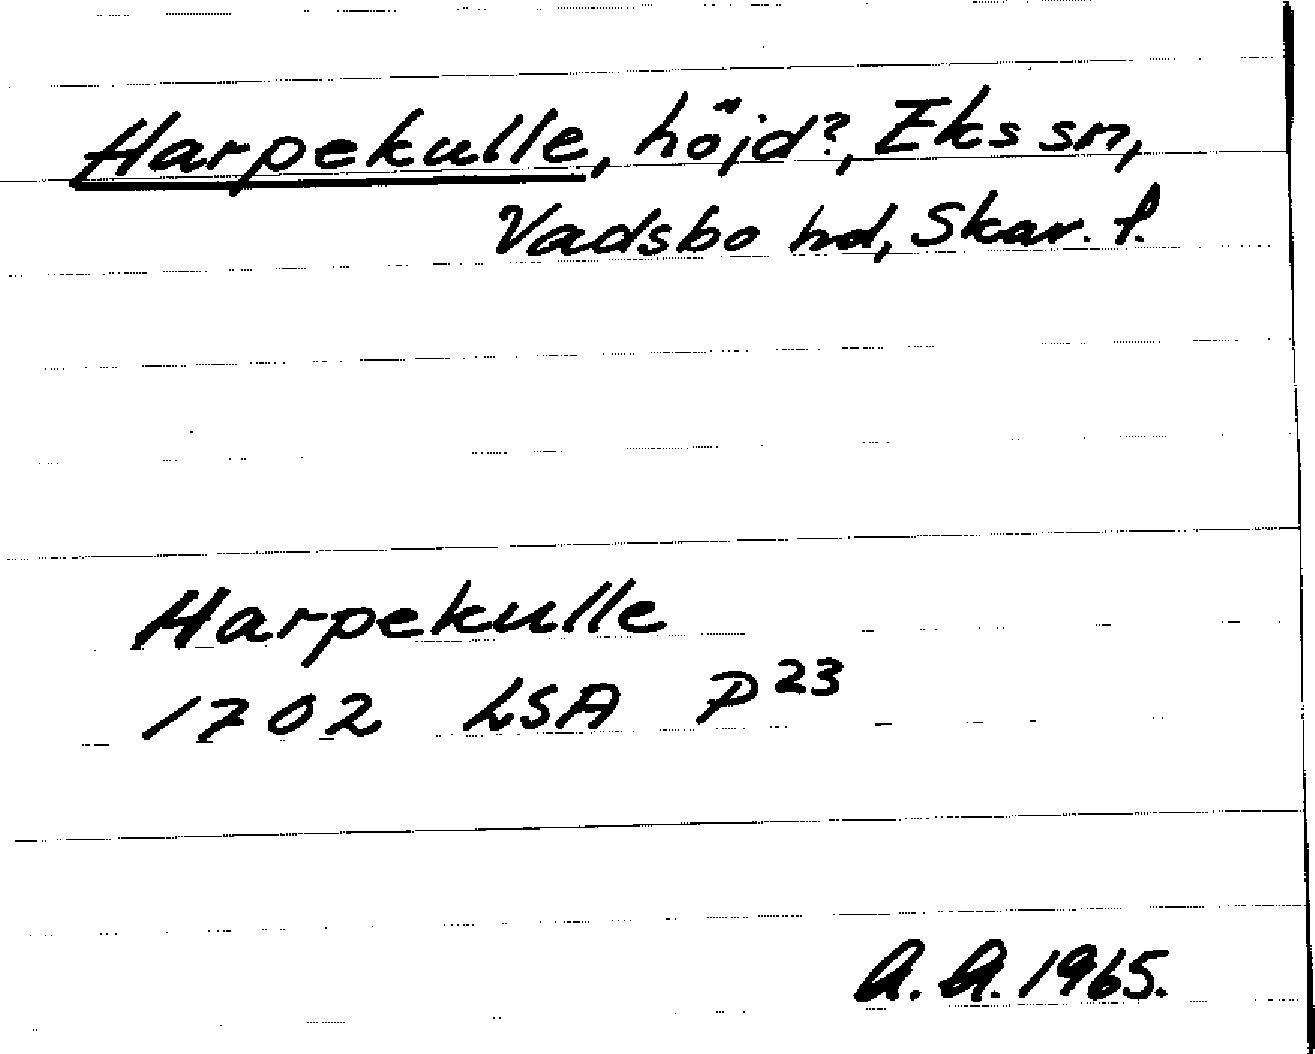 Harpekulle, höjd?, Eks sn,
Vadsbo hd, Skar. l.
Harpekulle
1702 LSA P23
A. A. 1965.